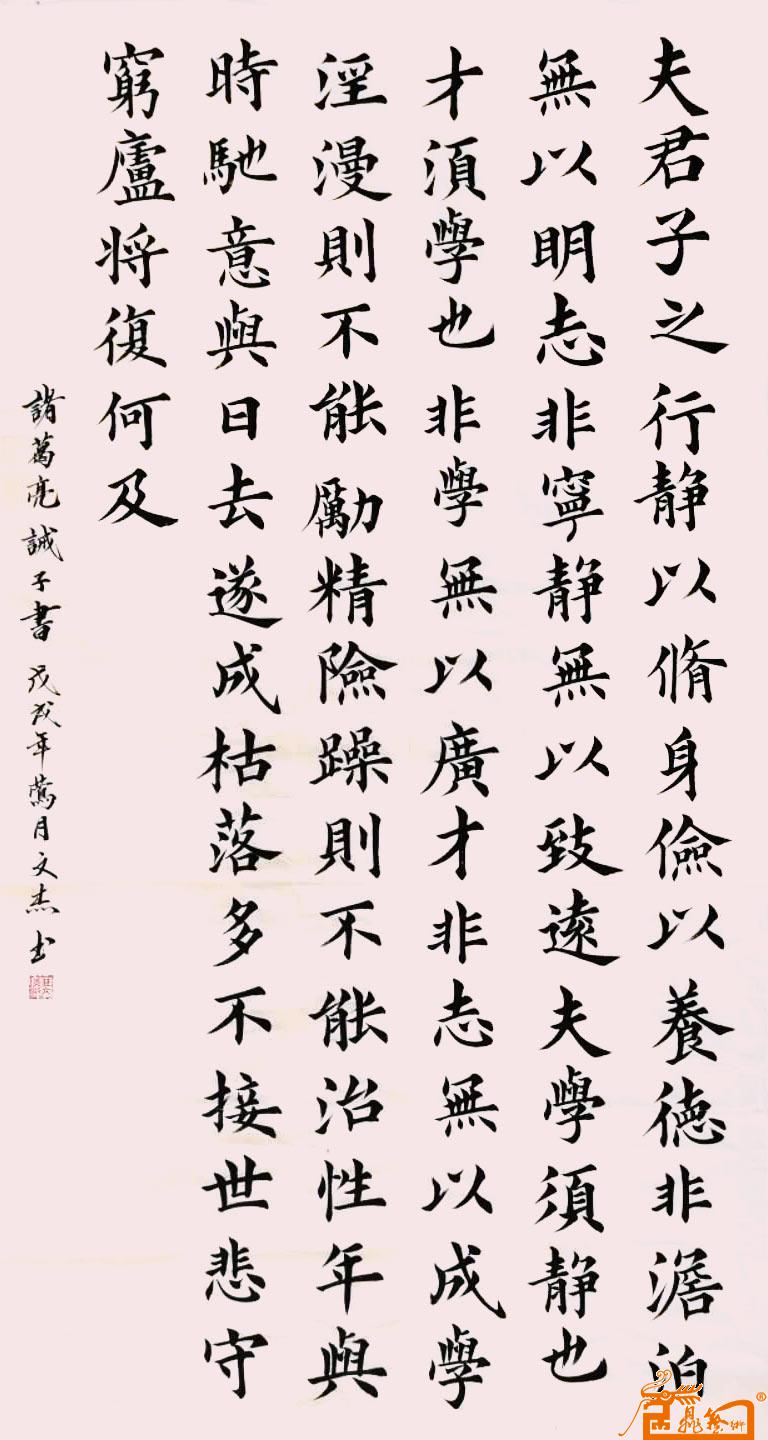 夫君子之行静以脩身儉以養德非澹泊
無以明志非寧静無以致遠夫學須静也
才須學也非學無以廣才非志無以成學
淫漫則不能勵精險躁則不能治性年與
時馳意與日去遂成枯落多不接世悲守
窮廬将復何及
諸葛亮誡子書 戊戌年鶯月文杰书